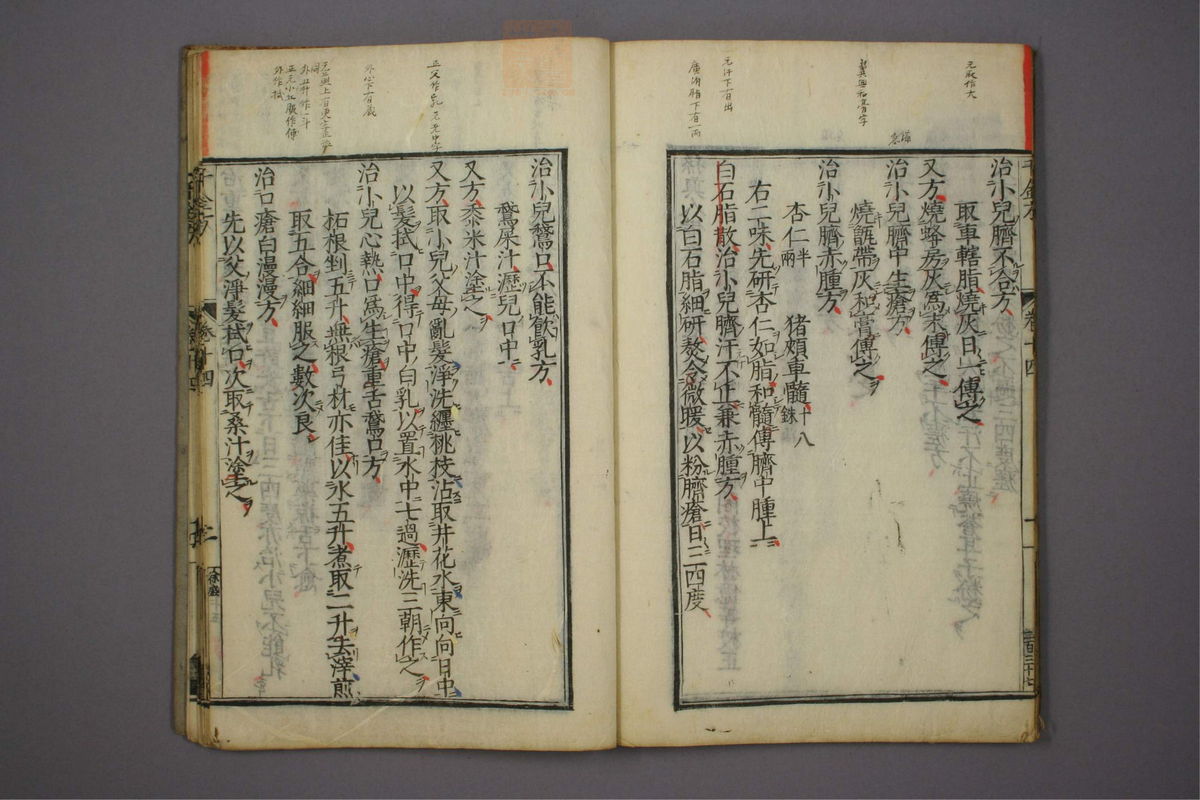 治小兒臍不合方
取車轄脂燒灰日一傅之
又方燒蜂房灰爲末傅之
治小兒臍中生瘡方
燒甑帶灰和膏傅之
治小兒臍赤腫方
杏仁半兩 猪頰車髓十八銖
右二味先研杏仁如脂和髓傅臍中腫上
白石脂散治小兒臍汗不止兼赤腫方
以白石脂細研熬令微暖以粉臍瘡日三四度
治小兒鵞口不能飮乳方
鵞屎汁瀝兒口中
又方黍米汁塗之
又方取小兒父母亂髮淨洗纏桃枝沾取井花水東向向日中
以髮拭口中得口中白乳以置水中七過瀝洗三朝作之
治小兒心熱口爲生瘡重舌鵞口方
柘根剉五升無根弓材亦佳以水五升煮取二升去滓煎
取五合細細服之數次良
治口瘡白漫漫方
先以父淨髮拭口次取桑汁塗之
千金方
卷十四